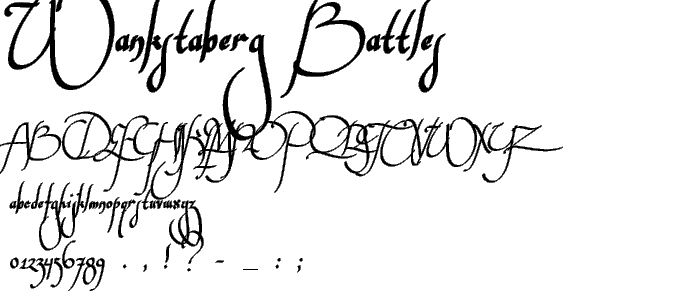 Wankstaberg Battles
ABCDEFGHIJKLMNOPQRSTUVWXYZ
abcdefghijklmnopqrstuvwxyz
0123456789 . , ! ? - _ : ;